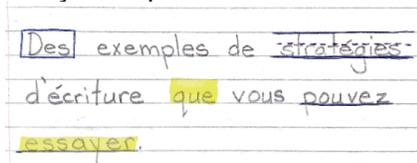 Des exemples de stratégies
d'écriture que vous pouvez
essayer.